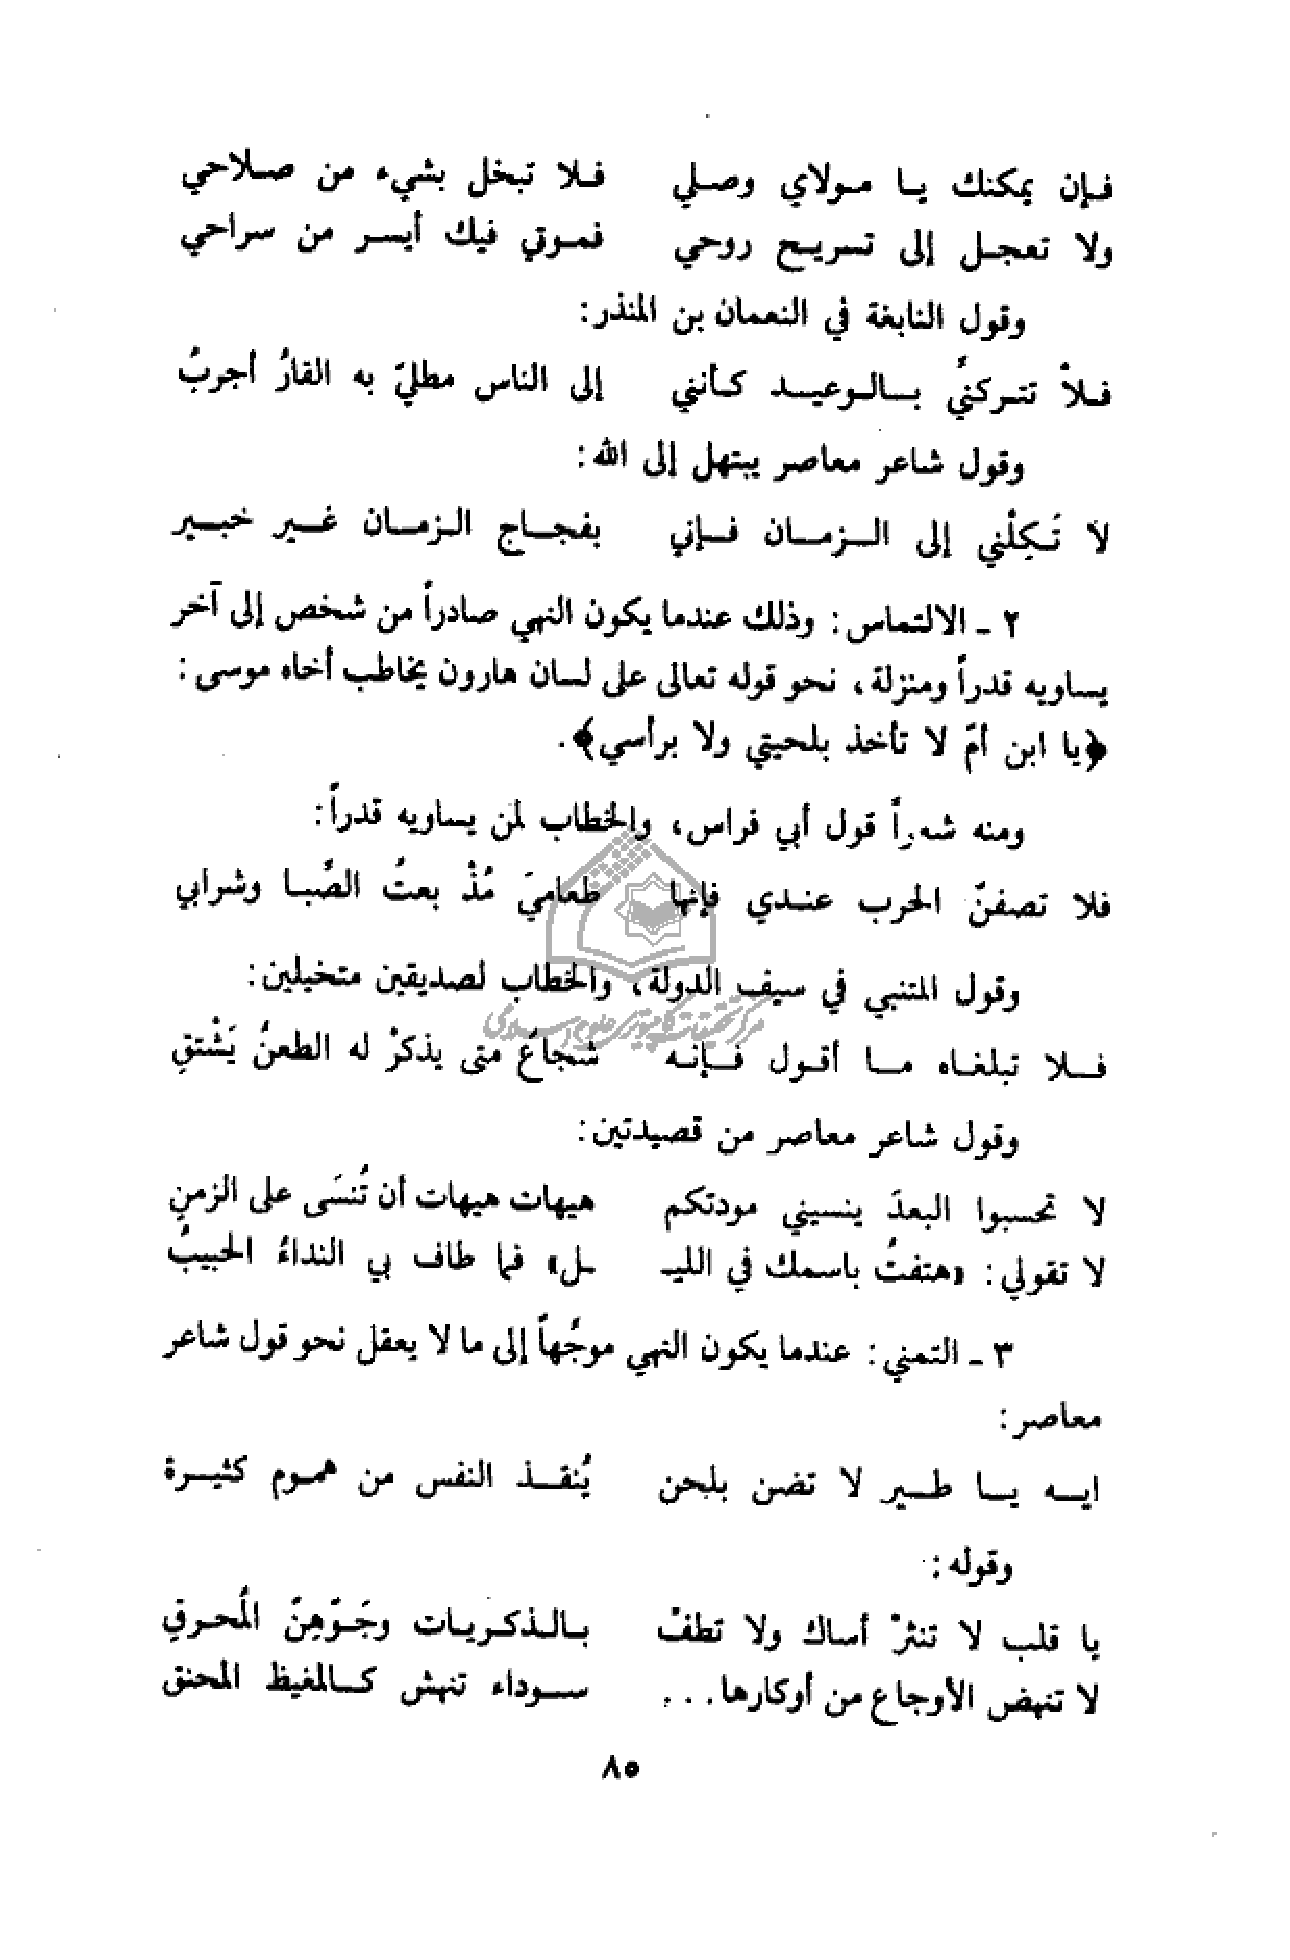 فـإن يمكنك يـا مـولاي وصـلي    فـلا تبخل بشيء من صـلاحي
ولا تعجـل إلى تسريـح روحي    فمـوتي فيك أيسـر من سراحي
وقول النابغة في النعمان بن المنذر:
فـلاْ تتـركنيٌ بـالـوعيـد كـأنني    إلى الناس مطليّ به القارُ أجربُ
وقول شاعر معاصر يبتهل إلى الله:
لاَ تَـكِلْني إلى الـزمـان فـإني    بفجـاج الـزمـان غـير خبـير
٢ ـ الالتماس: وذلك عندما يكون النهي صادراً من شخص إلى آخر
يساويه قدراً ومنزلة، نحو قوله تعالى على لسان هارون يخاطب أخاه موسى:
﴿يا ابن أمّ لا تأخذ بلحيتي ولا برأسي﴾.
ومنه شعراً قول أبي فراس، والخطاب لمن يساويه قدراً:
فلا تصفنّ الحرب عنـدي فإنها    طعاميَ مُذْ بعتُ الصِّبـا وشرابي
وقول المتنبي في سيف الدولة، والخطاب لصديقين متخيلين:
فـلا تبلغـاه مـا أقـول فـإنـه    شجاعٌ متى يذكرْ له الطعنُ يَشْتقِ
وقول شاعر معاصر من قصيدتين:
لا تحسبوا البعدَ ينسيني مودتكم    هيهات هيهات أن تُنسَى على الزمنِ
لا تقولي: «هتفتُ باسمك في الليـ    ـل» فما طاف بي النداءُ الحبيبُ
٣ ـ التمني: عندما يكون النهي موجُهاً إلى ما لا يعقل نحو قول شاعر
معاصر:
ايـه يـا طـير لا تضن بلحن    يُنقـذ النفس من همـوم كثيـرة
وقوله:
يا قلب لا تنثرْ أساك ولا تطفْ    بـالـذكـريـات وجَـوّهِنّ المُحـرقِ
لا تنهض الأوجاع من أوكارها...    سـوداء تنهش كـالمغيظ المُحنق
٨٥
مركز تحقيقات كامپيوتري علوم اسلامي